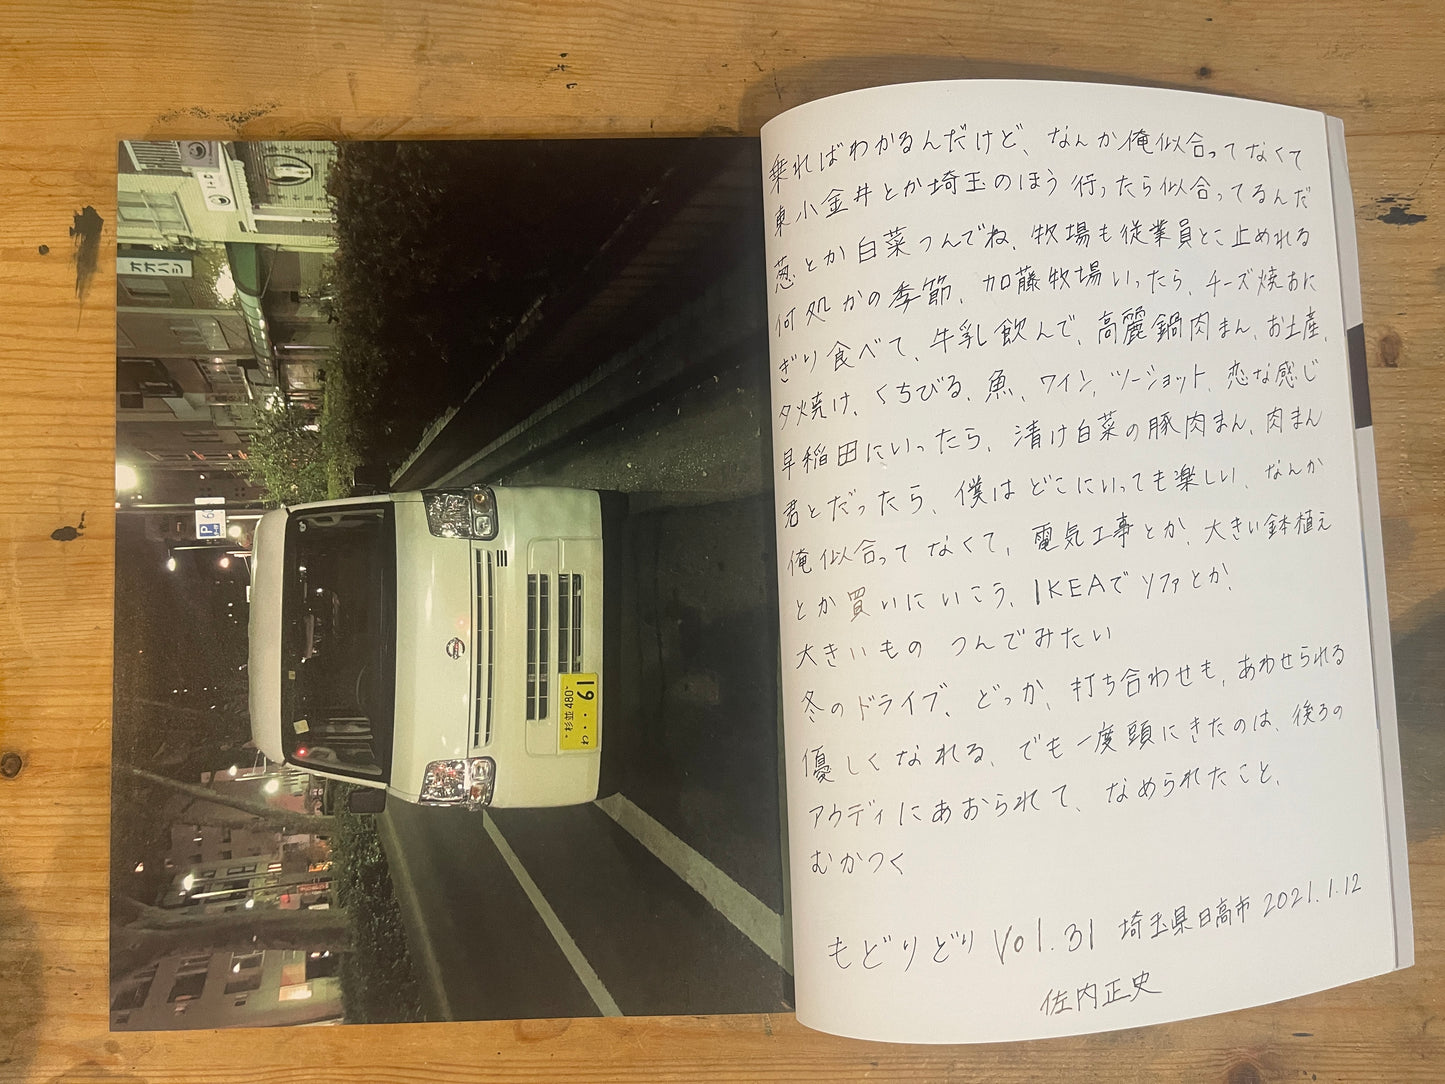 オオハシ
P
杉並 480
わ ・・61
乗ればわかるんだけど、なんか俺似合ってなくて
東小金井とか埼玉のほう行ったら似合ってるんだ
葱とか白菜つんでね、牧場も従業員とこ止めれる
何処かの季節、加藤牧場いったら、チーズ焼おに
ぎり食べて、牛乳飲んで、高麗鍋肉まん、お土産、
夕焼け、くちびる、魚、ワイン、ツーショット、恋な感じ
早稲田にいったら、漬け白菜の豚肉まん、肉まん
君とだったら、僕はどこにいっても楽しい、なんか
俺似合ってなくて、電気工事とか、大きい鉢植え
とか買いにいこう、IKEAでソファとか、
大きいもの つんでみたい
冬のドライブ、どっか、打ち合わせも、あわせられる
優しくなれる、でも一度頭にきたのは、後ろの
アウディにあおられて、なめられたこと、
むかつく
もどりどり Vol.31 埼玉県日高市 2021.1.12
佐内正史